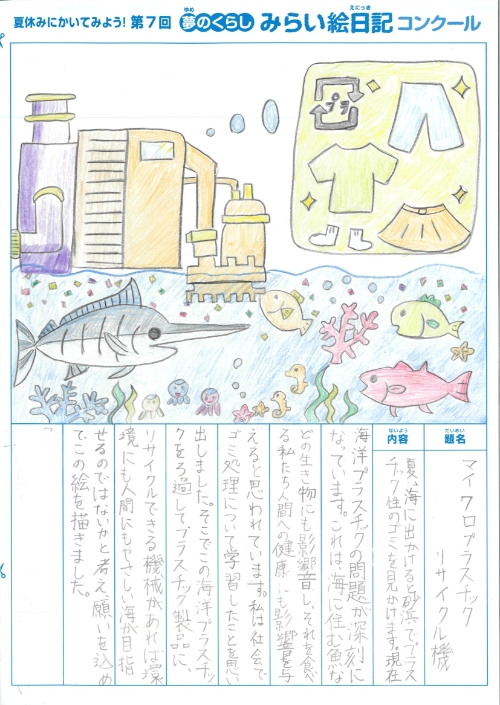 夏休みにかいてみよう！第7回 夢のくらし みらい絵日記コンクール
ゆめ
えにっき
プラ
題名
だいめい
マイクロプラスチック
リサイクル機
内容
ないよう
夏、海に出かけると砂浜でプラス
チック性のゴミを見かけます。現在
海洋プラスチックの問題が深刻に
なっています。これは、海に住む魚な
どの生き物にも影響し、それを食べ
る私たち人間への健康にも影響を与
えると思われています。私は社会で
ゴミ処理について学習したことを思い
出しました。そこでこの海洋プラスチッ
クをろ過して、プラスチック製品に、
リサイクルできる機械があれば環
境にも人間にもやさしい海が目指
せるのではないかと考え、願いを込め
てこの絵を描きました。